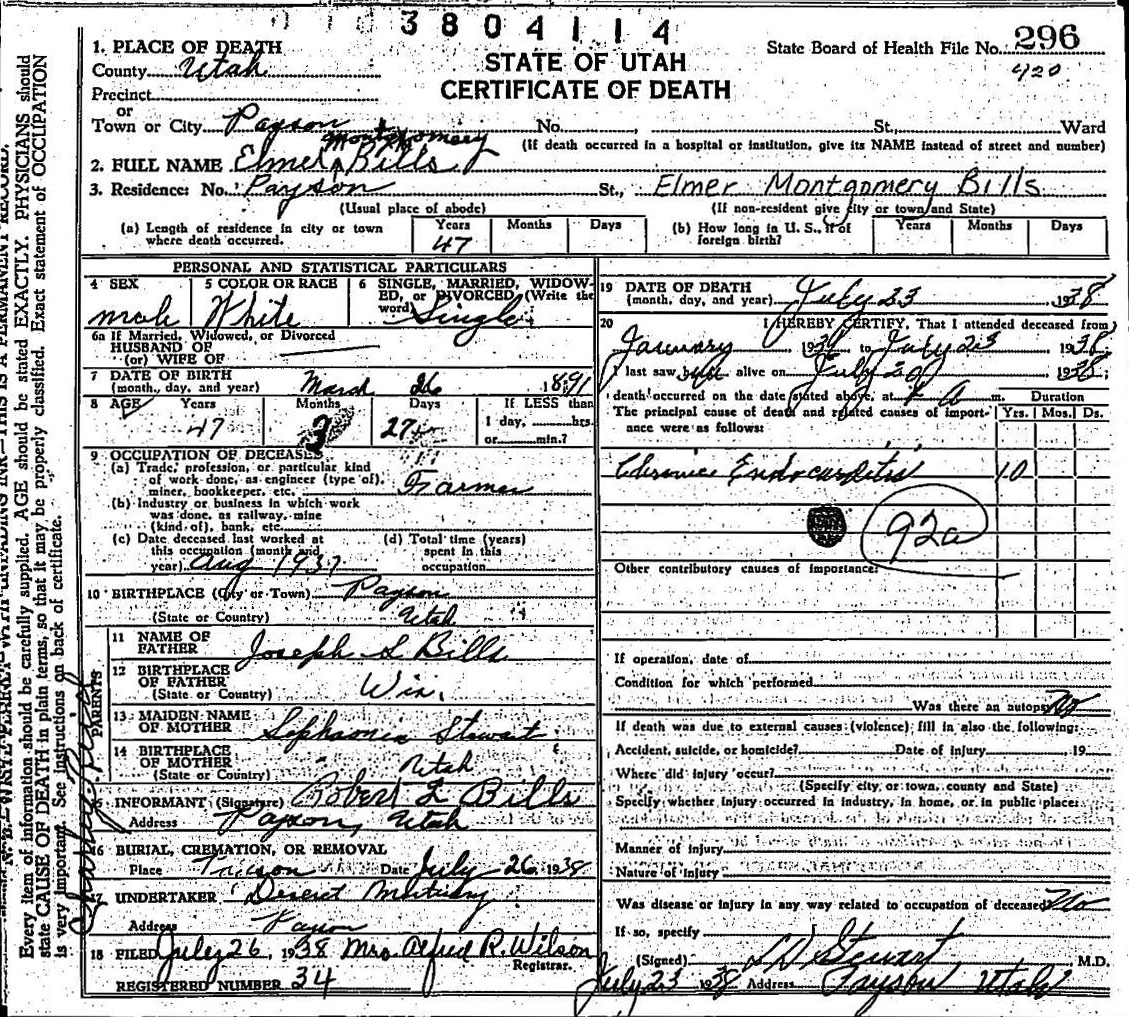 3804114
1. PLACE OF DEATH
State Board of Health File No. 296
County Utah
STATE OF UTAH
420
Precinct
CERTIFICATE OF DEATH
or
Town or City Payson No. , St., Ward
(If death occurred in a hospital or institution, give its NAME instead of street and number)
Montgomery
2. FULL NAME Elmer Bills
3. Residence: No. Payson St., Elmer Montgomery Bills
(Usual place of abode) (If non-resident give city or town and State)
(a) Length of residence in city or town where death occurred. Years Months Days
47
(b) How long in U. S., if of foreign birth? Years Months Days
PERSONAL AND STATISTICAL PARTICULARS
4 SEX 5 COLOR OR RACE 6 SINGLE, MARRIED, WIDOWED, or DIVORCED (Write the word)
male White Single
6a If Married, Widowed, or Divorced
HUSBAND OF
(or) WIFE OF
7 DATE OF BIRTH
(month, day, and year) March 26 1891
8 AGE Years Months Days If LESS than
47 3 27 1 day, hrs.
or min.?
9 OCCUPATION OF DECEASED
(a) Trade, profession, or particular kind
of work done, as engineer (type of),
miner, bookkeeper, etc. Farmer
(b) Industry or business in which work
was done, as railway, mine
(kind of), bank, etc.
(c) Date deceased last worked at
this occupation (month and
year) Aug 1937
(d) Total time (years)
spent in this
occupation
10 BIRTHPLACE (City or Town) Payson
(State or Country) Utah
PARENTS
11 NAME OF
FATHER Joseph S Bills
12 BIRTHPLACE
OF FATHER
(State or Country) Wis.
13 MAIDEN NAME
OF MOTHER Sophronia Stewart
14 BIRTHPLACE
OF MOTHER
(State or Country) Utah
15 INFORMANT (Signature) Robert L Bills
Address Payson, Utah
16 BURIAL, CREMATION, OR REMOVAL
Place Date July 26 1938
17 UNDERTAKER Deseret Mortuary
Address Payson
18 FILED July 26, 1938 Mrs Alfred R. Wilson
Registrar.
REGISTERED NUMBER 34
19 DATE OF DEATH
(month, day, and year) July 23 1938
20 I HEREBY CERTIFY, That I attended deceased from
January 193 to July 23 1938
I last saw him alive on July 20 1938;
death occurred on the date stated above, at A m. Duration
The principal cause of death and related causes of importance were as follows: Yrs. Mos. Ds.
Chronic Endocarditis 10
92a
Other contributory causes of importance:
If operation, date of
Condition for which performed
Was there an autopsy No
If death was due to external causes (violence) fill in also the following:
Accident, suicide, or homicide? Date of injury 19
Where did injury occur?
(Specify city, or town, county and State)
Specify whether injury occurred in industry, in home, or in public place:
Manner of injury
Nature of injury
Was disease or injury in any way related to occupation of deceased? No
If so, specify
(Signed) L D Stewart M.D.
July 23 1938 Address Payson Utah
Every item of information should be carefully supplied. AGE should be stated EXACTLY. PHYSICIANS should
state CAUSE OF DEATH in plain terms, so that it may be properly classified. Exact statement of OCCUPATION
is very important. See instructions on back of certificate.